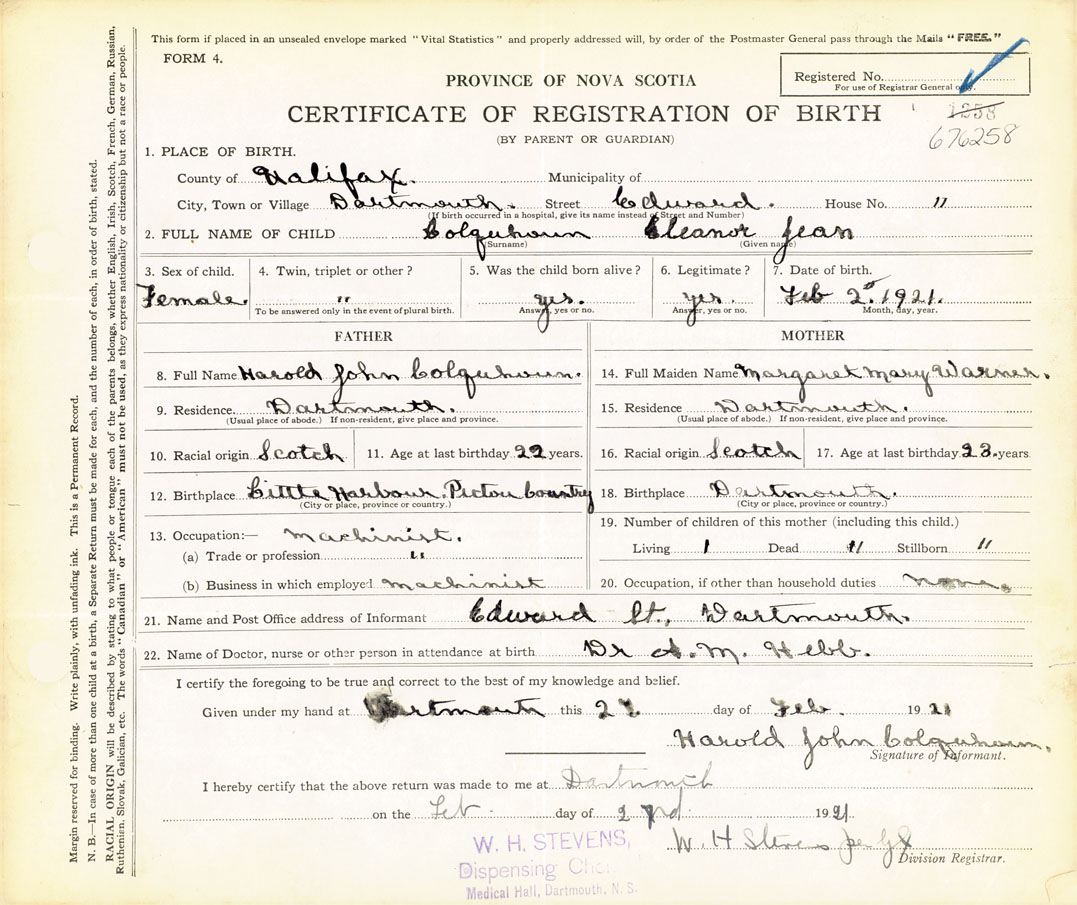 This form if placed in an unsealed envelope marked "Vital Statistics" and properly addressed will, by order of the Postmaster General pass through the Mails "FREE."
FORM 4.
Registered No.
For use of Registrar General only.
PROVINCE OF NOVA SCOTIA
CERTIFICATE OF REGISTRATION OF BIRTH
1258
676258
(BY PARENT OR GUARDIAN)
1. PLACE OF BIRTH.
County of Halifax. Municipality of
City, Town or Village Dartmouth. Street Edward. House No. "
(If birth occurred in a hospital, give its name instead of Street and Number)
2. FULL NAME OF CHILD Colquhoun Eleanor Jean
(Surname) (Given name)
3. Sex of child. 4. Twin, triplet or other? 5. Was the child born alive? 6. Legitimate? 7. Date of birth.
Female. " yes. yes. Feb 2nd. 1921.
To be answered only in the event of plural birth. Answer, yes or no. Answer, yes or no. Month, day, year.
FATHER MOTHER
8. Full Name Harold John Colquhoun. 14. Full Maiden Name Margaret Mary Warner.
9. Residence. Dartmouth. 15. Residence Dartmouth.
(Usual place of abode.) If non-resident, give place and province. (Usual place of abode.) If non-resident, give place and province.
10. Racial origin Scotch 11. Age at last birthday 22 years. 16. Racial origin Scotch 17. Age at last birthday 23. years
12. Birthplace Little Harbour, Pictou Country 18. Birthplace Dartmouth.
(City or place, province or country.) (City or place, province or country.)
13. Occupation:— Machinist. 19. Number of children of this mother (including this child.)
(a) Trade or profession " Living 1 Dead " Stillborn "
(b) Business in which employed machinist 20. Occupation, if other than household duties none.
21. Name and Post Office address of Informant Edward St., Dartmouth.
22. Name of Doctor, nurse or other person in attendance at birth Dr A. M. Hebb.
I certify the foregoing to be true and correct to the best of my knowledge and belief.
Given under my hand at Dartmouth this day of Feb. 1921
Harold John Colquhoun.
Signature of Informant.
I hereby certify that the above return was made to me at Dartmouth
on the Feb. day of 1921
W. H. STEVENS,
W. H Stevens per
Division Registrar.
Dispensing
Medical Hall, Dartmouth, N. S.
Margin reserved for binding. Write plainly, with unfading ink. This is a Permanent Record.
N. B.—In case of more than one child at a birth, a Separate Return must be made for each, and the number of each, in order of birth, stated.
RACIAL ORIGIN will be described by stating to what people or tongue each of the parents belongs, whether English, Irish, Scotch, French, German, Russian,
Ruthenian, Slovak, Galician, etc. The words "Canadian" or "American" must not be used, as they express nationality or citizenship but not a race or people.